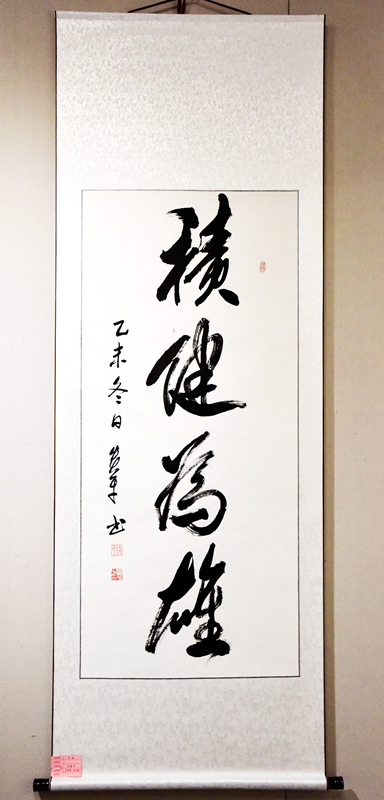 積健為雄
乙未冬日 書